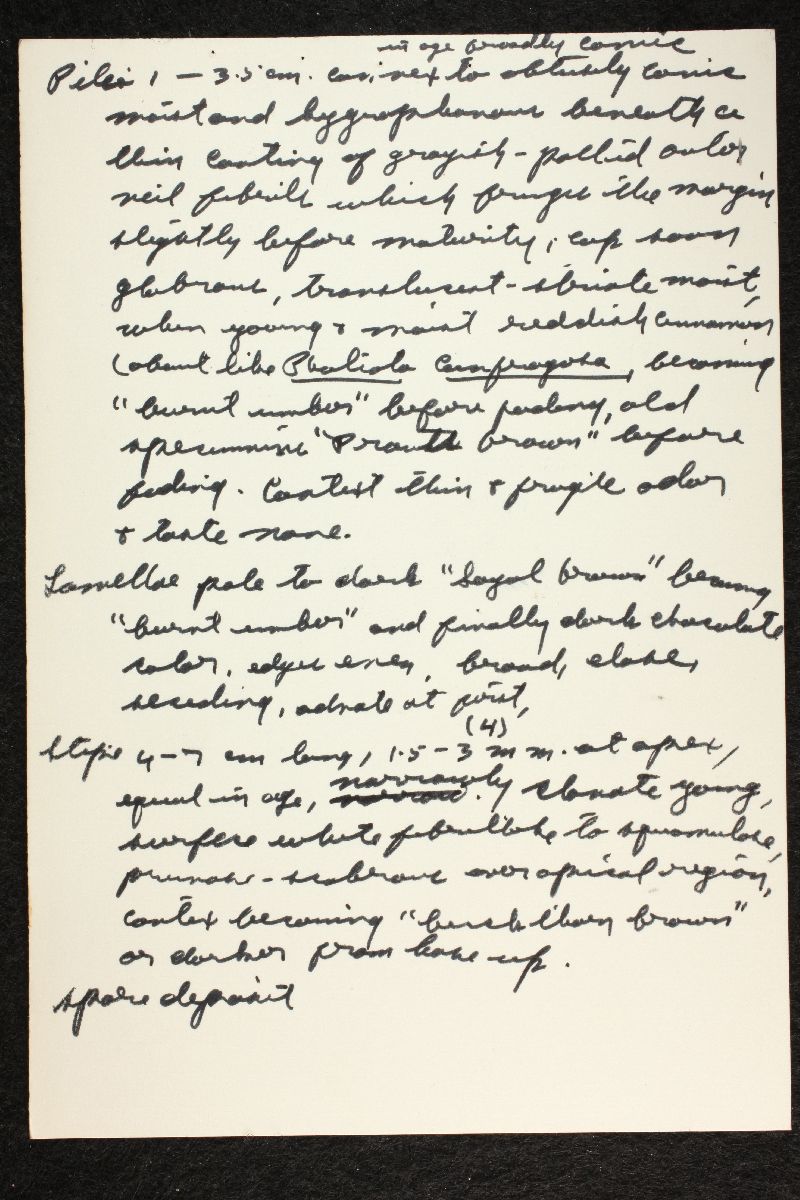 in age broadly conic
Pilei 1 – 3.5 cm. convex to obtusely conic
moist and hygrophanous beneath a
thin coating of grayish-pallid outer
veil fibrils which fringe the margin
slightly before maturity, cap soon
glabrous, translucent-striate moist,
when young & moist reddish cinnamon
(about like Pholiota confragosa, becoming
"burnt umber" before fading, old
specimens "Prouts brown" before
fading. Context thin & fragile odor
& taste none.
Lamellae pale to dark "Sayal brown" becoming
"burnt umber" and finally dark chocolate
color, edges even, broad, close,
seceding, adnate at first,
(4)
Stipe 4–7 cm long, 1.5–3 mm. at apex,
equal in age, narrowly clavate young,
surface white fibrillose to squamulose,
pruinose-scabrous over apical region,
cortex becoming "buckthorn brown"
or darker from base up.
spore deposit